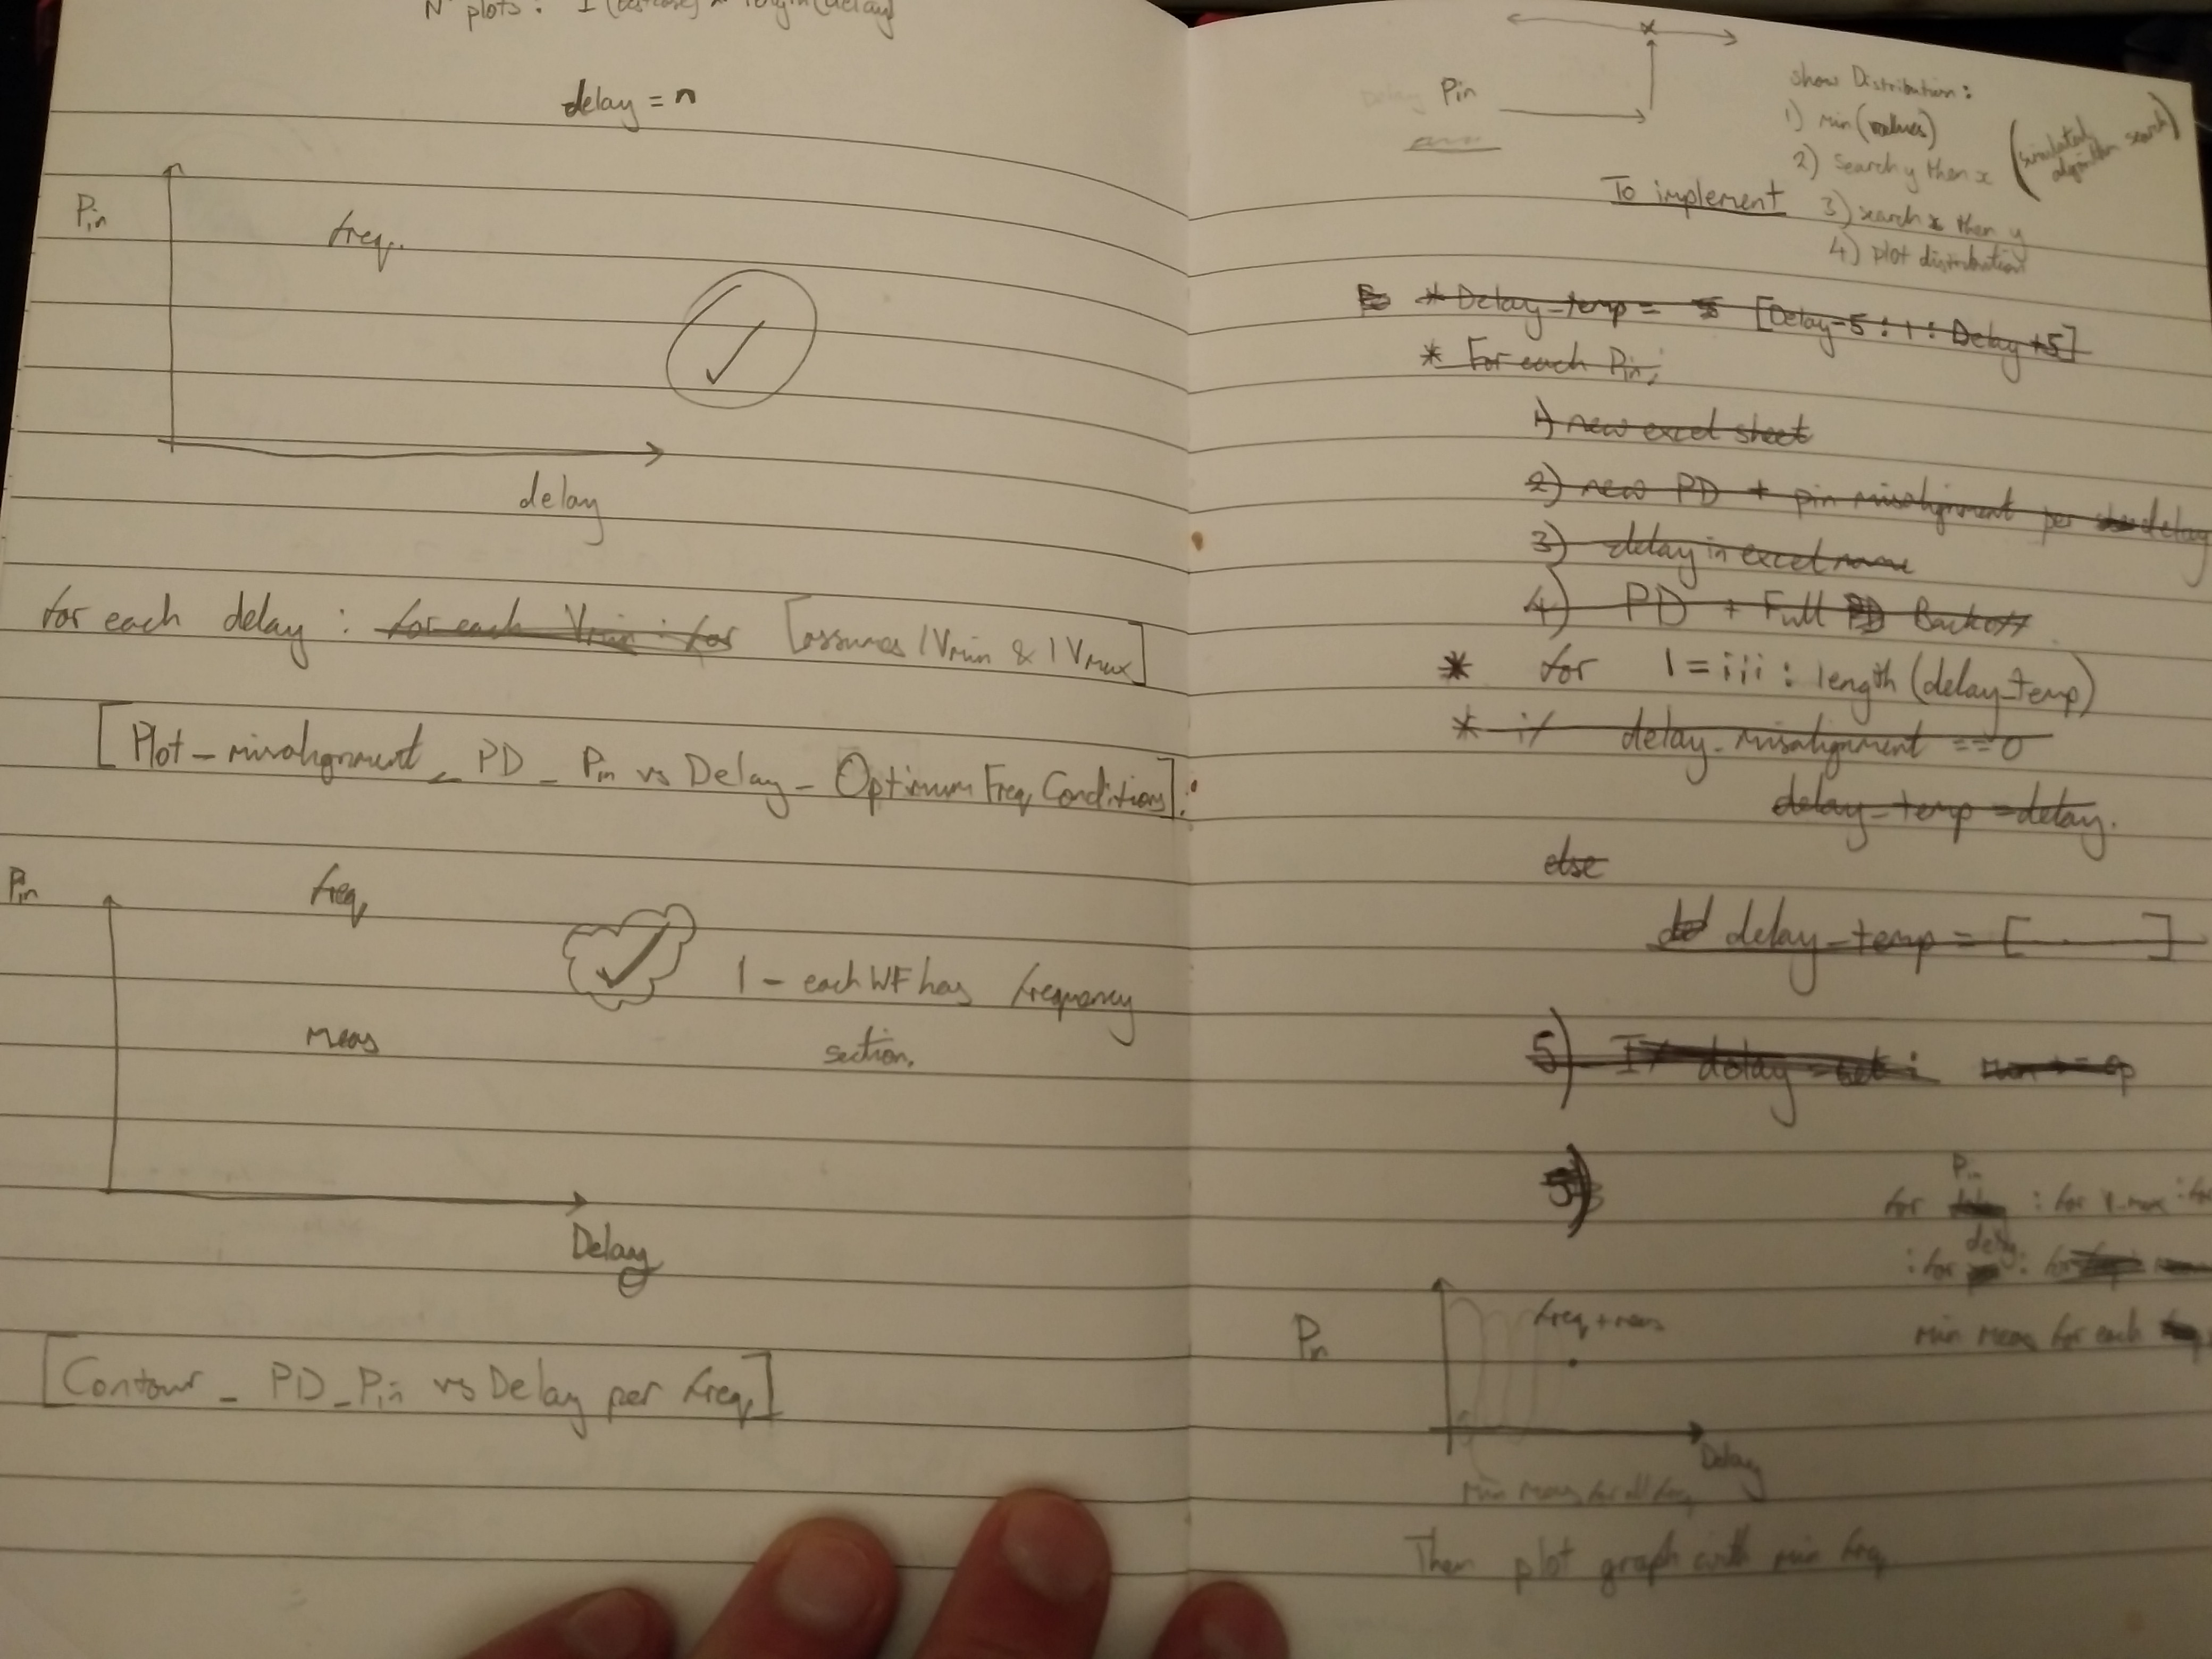 N° plots :
delay = n
Pin
freq.
delay
for each delay : for each Vmin : for [assumes 1 Vmin & 1 Vmax]
[Plot_misalignment_PD_Pin vs Delay_Optimum Freq Conditions]:
Pin
freq
1 - each WF has frequency
meas
section.
Delay
[Contour_PD_Pin vs Delay per freq]
x
Pin
show Distribution:
1) min(values)
2) search y then x
(simulated algorithm search)
To implement
3) search x then y
4) plot distribution
* Delay_temp = [Delay-5 : 1 : Delay+5]
* For each Pin;
1) new excel sheet
2) new PD + pin misalignment per delay
3) delay in excel name
4) PD + Full Backoff
* for 1 = iii : length (delay_temp)
* if delay_misalignment == 0
delay_temp = delay.
else
delay_temp = [ ]
5) If delay
5)
for Pin : for
: for delay :
Pin
freq + meas
min meas for each
Delay
min meas for all freq
Then plot graph with min freq